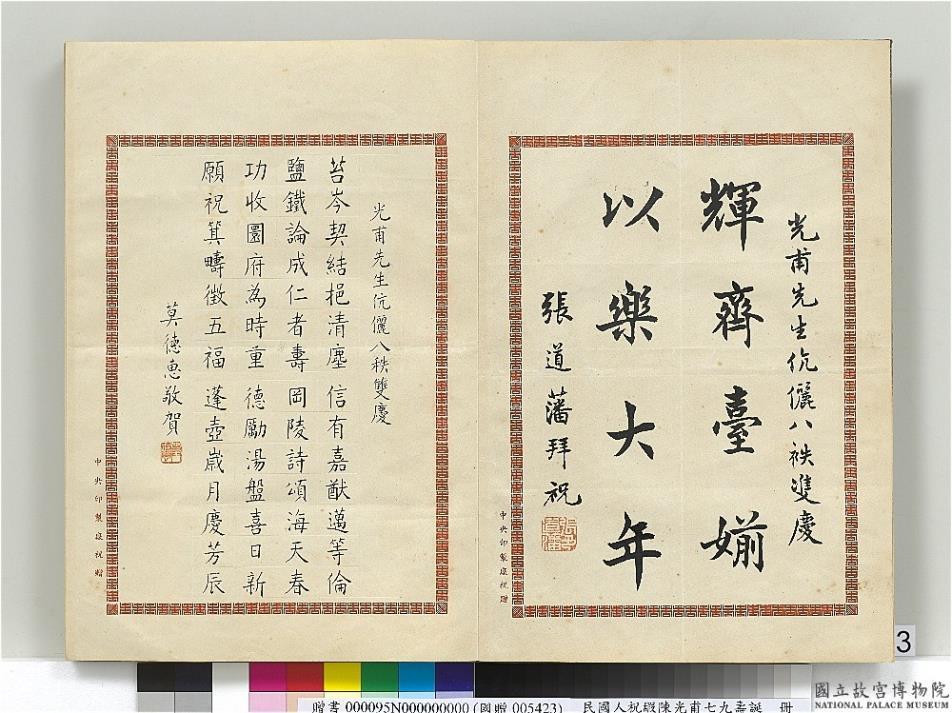 光甫先生伉儷八秩雙慶
輝齊臺婺
以樂大年
張道藩拜祝
中央印製廠祝贈
光甫先生伉儷八秩雙慶
苔岑契結挹清塵 信有嘉猷邁等倫
鹽鐵論成仁者壽 岡陵詩頌海天春
功收圜府為時重 德勵湯盤喜日新
願祝箕疇徵五福 蓬壺歲月慶芳辰
莫德惠敬賀
中央印製廠祝贈
3
贈書 000095N000000000 (圖贈 005423) 民國人祝嘏陳光甫七九壽誕 冊
國立故宮博物院
NATIONAL PALACE MUSEUM